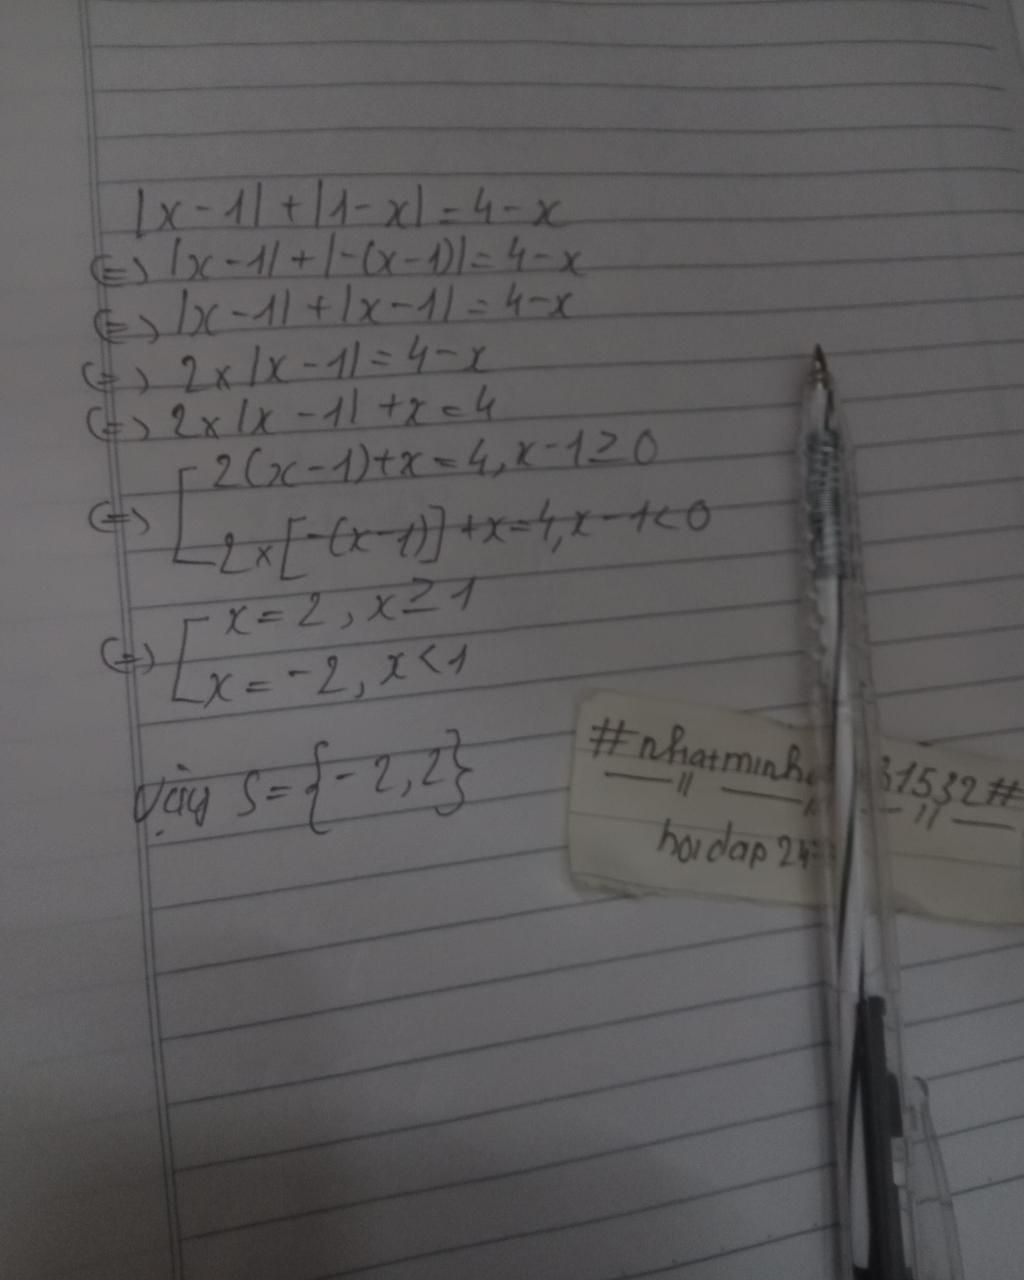 |x-1| + |1-x| = 4-x
(=) |x-1| + |-(x-1)| = 4-x
(=) |x-1| + |x-1| = 4-x
(=) 2 x |x-1| = 4-x
(=) 2 x |x-1| + x = 4
(=) [ 2(x-1)+x = 4, x-1 ≥ 0
2 x [-(x-1)] + x = 4, x-1 < 0
(=) [ x = 2, x ≥ 1
x = -2, x < 1
Vậy S = {-2, 2}
#nhatminh 31532#
hoidap 24